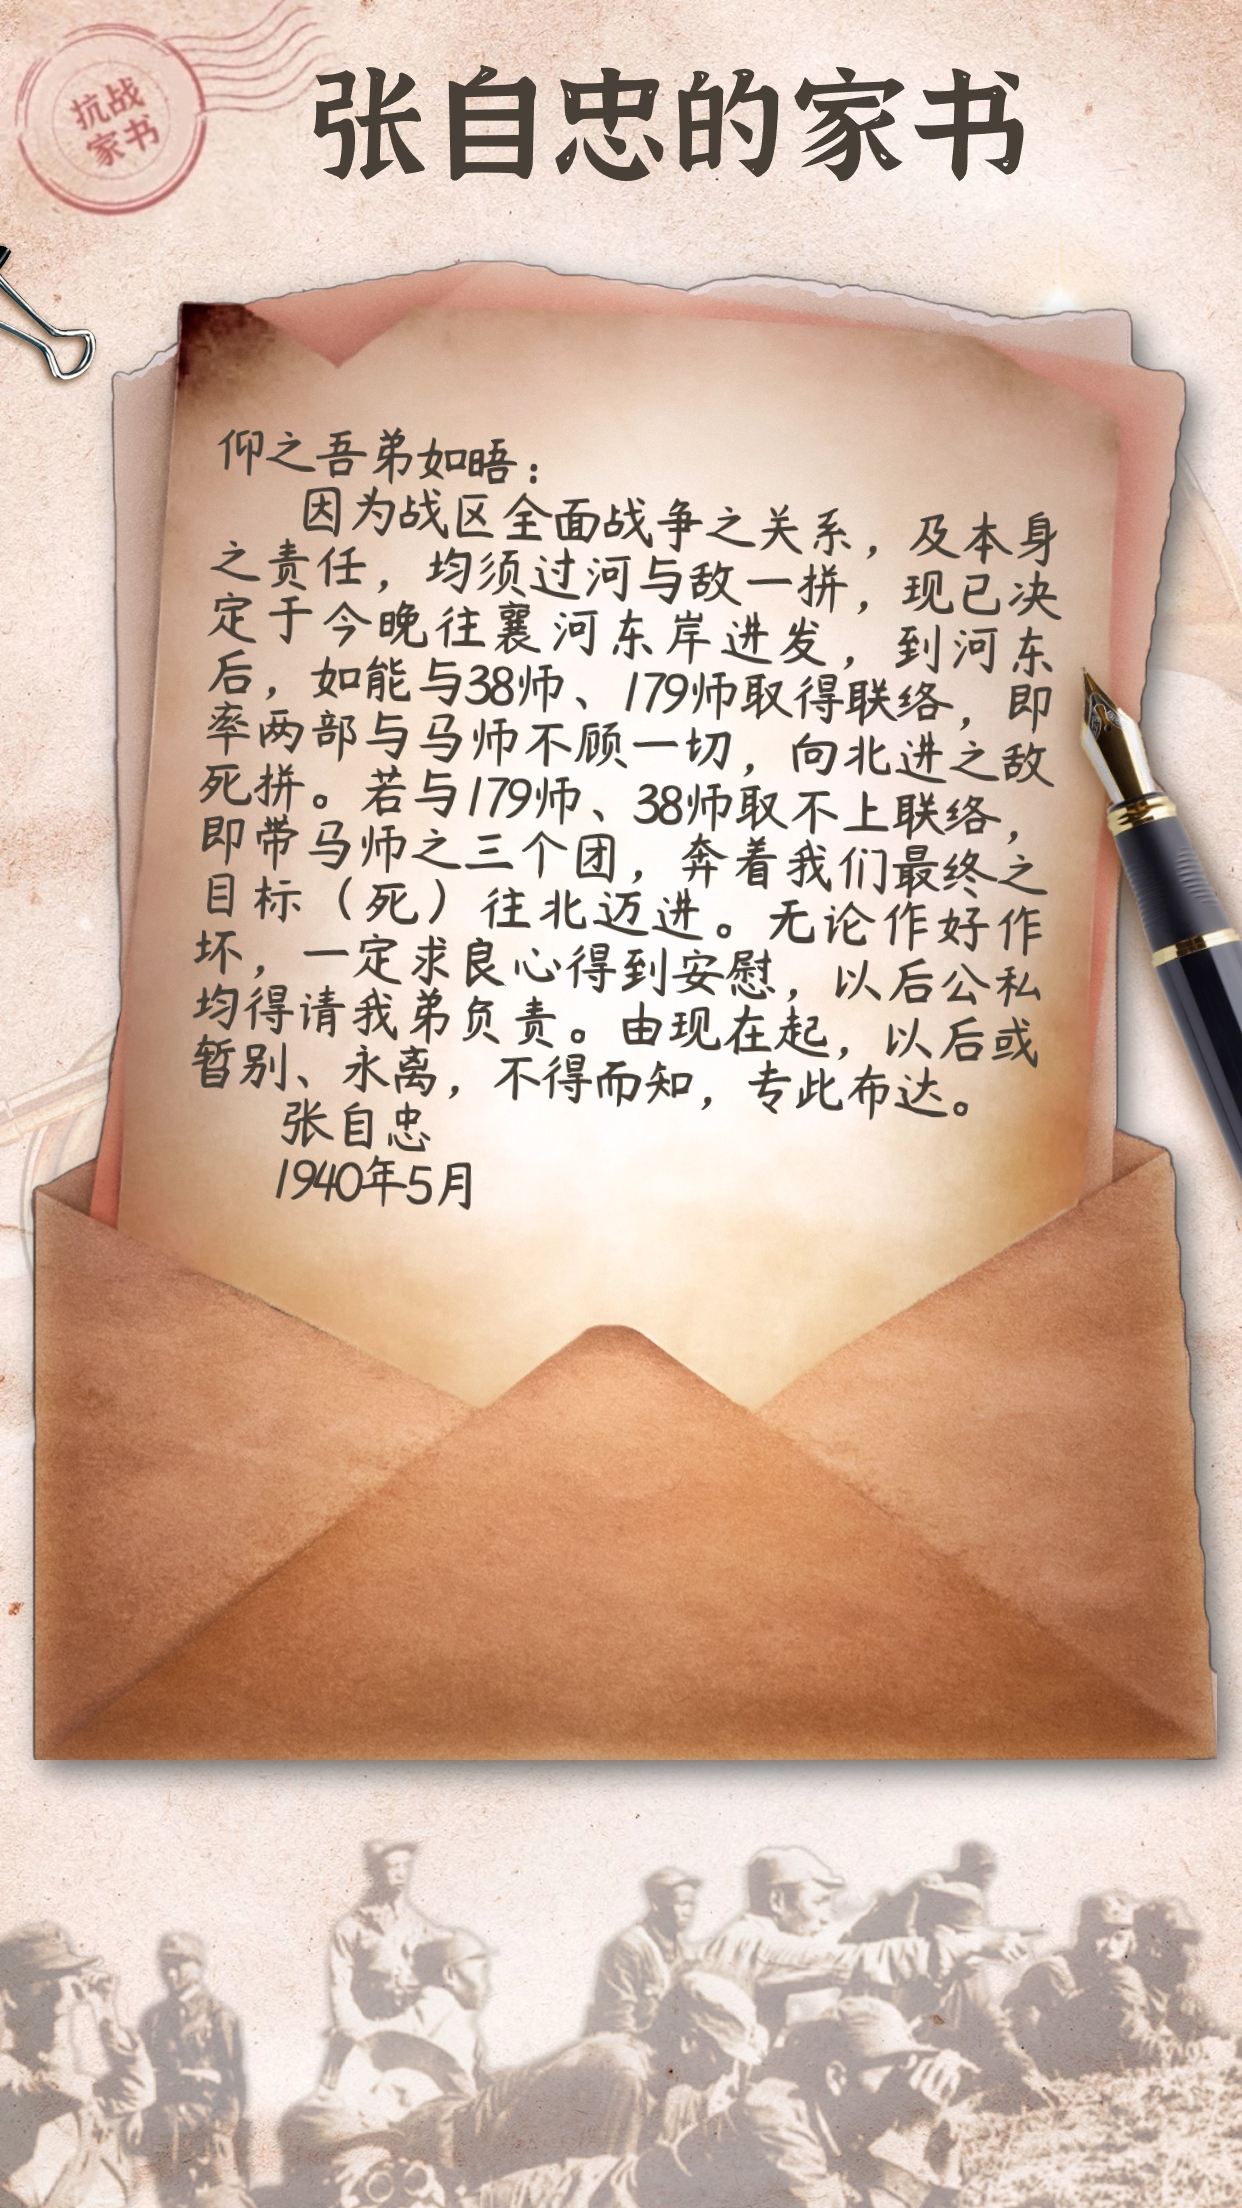 抗战
家书
张自忠的家书
仰之吾弟如晤：
因为战区全面战争之关系，及本身
之责任，均须过河与敌一拼，现已决
定于今晚往襄河东岸进发，到河东
后，如能与38师、179师取得联络，即
率两部与马师不顾一切，向北进之敌
死拼。若与179师、38师取不上联络，
即带马师之三个团，奔着我们最终之
目标（死）往北迈进。无论作好作
坏，一定求良心得到安慰，以后公私
均得请我弟负责。由现在起，以后或
暂别、永离，不得而知，专此布达。
张自忠
1940年5月